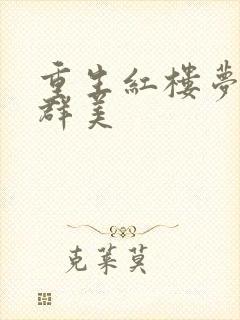 重生紅樓夢
群美
克萊莫